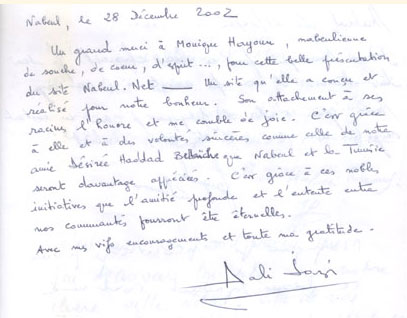 Nabeul, le 28 Décembre 2002
Un grand merci à Monique Hayoun, nabeulienne
de souche, de coeur, d'esprit ..., pour cette belle présentation
du site Nabeul.Net ___ Un site qu'elle a conçu et
réalisé pour notre bonheur. Son attachement à ses
racines l'honore et me comble de joie. C'est grâce
à elle et à des volontés sincères comme celle de notre
amie Désirée Haddad que Nabeul et la Tunisie
seront davantage appréciées. C'est grâce à ces nobles
initiatives que l'amitié profonde et l'entente entre
nos communautés pourront être éternelles.
Avec mes vifs encouragements et toute ma gratitude.